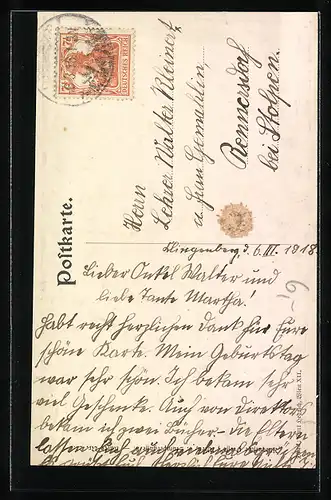 DEUTSCHES REICH
Postkarte.
Herrn
Lehrer Walter Kleinert
u. Frau Gemahlin
Rennersdorf
bei Stolpen.
Klingenberg, d. 6. III. 1918.
Lieber Onkel Walter und
liebe Tante Martha!
Habt recht herzlichen Dank für Eure
schöne Karte. Mein Geburtstag
war sehr schön. Ich bekam sehr
viel Geschenke. Auch von Direktors
bekam ich zwei Bücher. Die Eltern
lassen